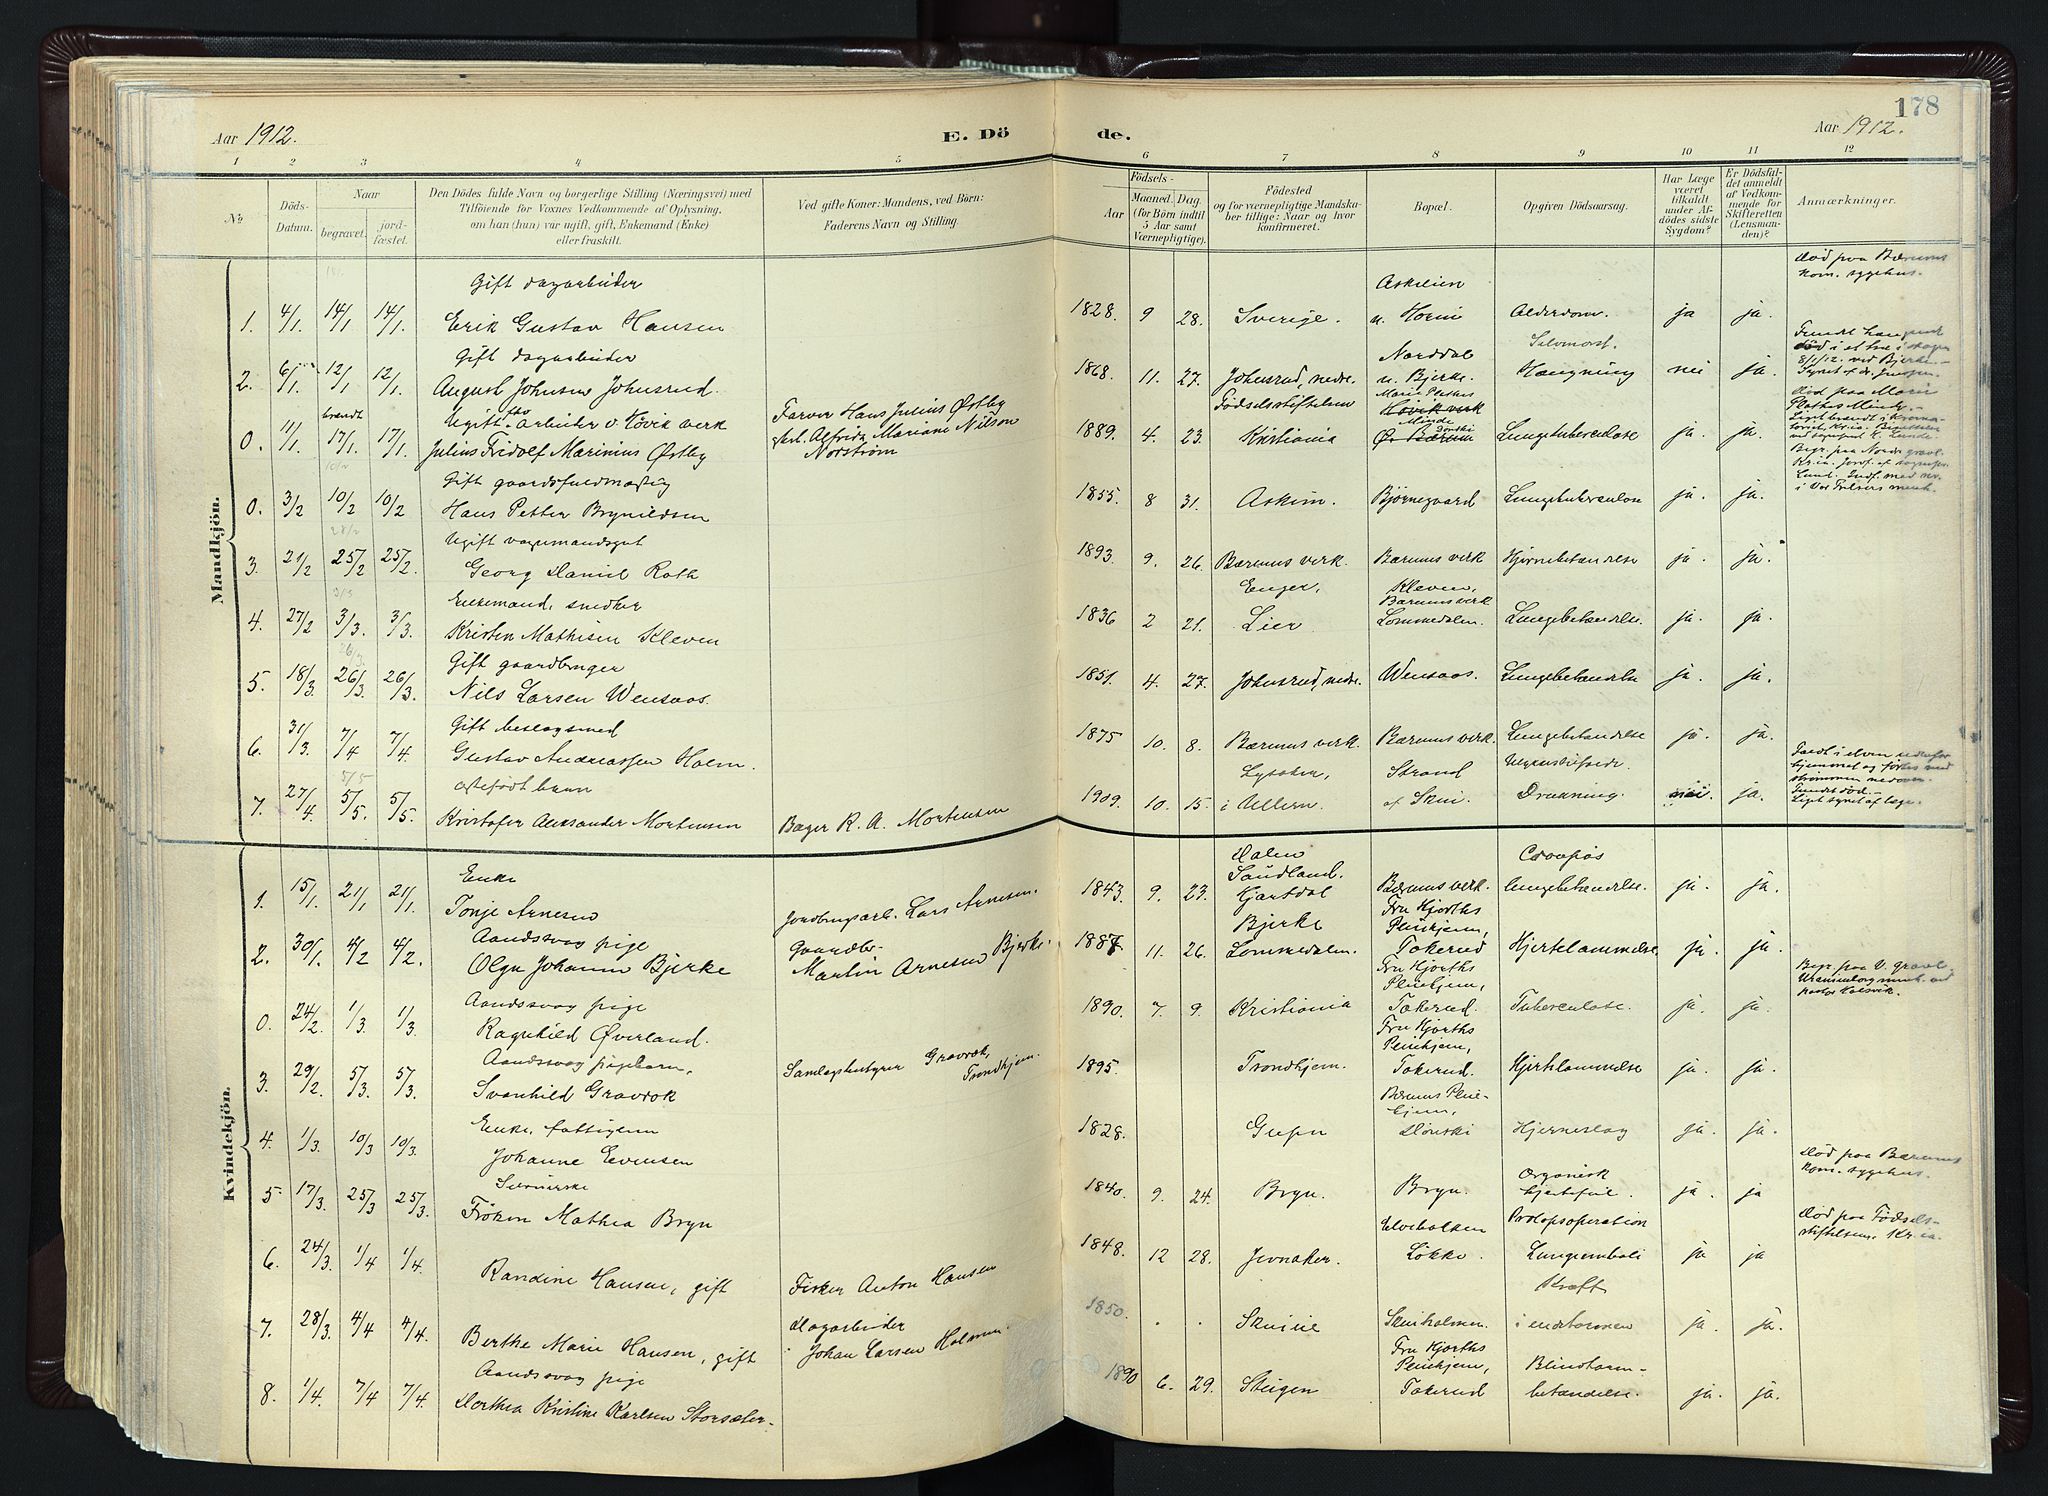 178
Aar 1912. E. Dö de. Aar 1912.
1 2 3 4 5 6 7 8 9 10 11 12
No.
Döds-Datum.
Naar
begravet.
jord-fæstet.
Den Dödes fulde Navn og borgerlige Stilling (Næringsvei) med
Tilföiende for Voxnes Vedkommende af Oplysning,
om han (hun) var ugift, gift, Enkemand (Enke)
eller fraskilt.
Ved gifte Koner: Mandens, ved Börn:
Faderens Navn og Stilling.
Födsels-
Aar
Maaned. Dag.
(for Börn indtil
5 Aar samt
Værnepligtige).
Födested
og for værnepligtige Mandska-
ber tillige: Naar og hvor
konfirmeret.
Bopæl.
Opgiven Dödsaarsag.
Har Læge
været
tilkaldt
under Af-
dödes sidste
Sygdom?
Er Dödsfal-
det anmeldt
af Vedkom-
mende for
Skifteretten
(Lensman-
den)?
Anmærkninger.
Mandkjön.
Gift dagarbeider Askilien Død paa Bærums
kom. sygehus.
1. 4/1. 14/1 14/1. Erik Gustav Hansen 1828. 9 28. Sverige. u. Horni Alderdom. ja ja.
Gift dagarbeider Norddal Selvmord.
2. 6/1. 12/1 12/1. August Johnsen Johnsrud. 1868 11. 27. Johnsrud, nedre. u. Bjerke. Hængning nei ja.
8/1/12. ved Bjerke.
brændt Ugift arbeider v. Høvik verk Farver Hans Julius Østby Fødselsstiftelsen Høvik verk Død paa Marie
0. 11/1. 17/1 17/1. Julius Fridolf Marinius Østby Alfrida Mariane Nilson Norström 1889. 4. 23. Kristiania Ø. Bærum Lungetuberculose ja. ja.
Gift gaardsfuldmægtig
0. 3/2 10/2 10/2 Hans Petter Brynildsen 1855. 8 31. Askim. Bjørnegaard Lungetuberculose ja. ja.
Ugift vognmandsgut
3. 21/2 25/2 25/2. Georg Daniel Roth 1893. 9. 26. Bærums verk. Bærums verk Hjernebetændelse ja. ja.
Enkemand, snedker Enger, Kleven,
Bærums verk
4. 27/2 3/3. 3/3. Kristen Mathisen Kleven 1836 2 21. Lier Lommedalen. Lungebetændelse. ja. ja.
Gift gaardbruger
5. 18/3. 26/3. 26/3. Nils Larsen Wensaas. 1851. 4. 27. Johnsrud, nedre. Wensaas. Lungebetændelse ja. ja.
Gift beslagsmed
6. 31/3. 7/4 7/4. Gustav Andreassen Holm. 1875 10. 8. Bærums verk. Bærums verk. Lungebetændelse ja. ja.
Lysaker, Strand Ulykkestilfælde.
7. 27/4 5/5. 5/5. Kristofer Aleksander Mortensen Bager K. A. Mortensen 1909. 10. 15. i Ullern. af Skui. Drukning. nei. ja.
Fundet død. -
Liget synet af læge.
Kvindekjön.
Enke Sandland. Croupøs
1. 15/1. 21/1 21/1. Tonje Arnesen Jordbrugsarb. Lars Arnesen. 1843. 9. 23. Hjartdal Bærums verk. lungebetændelse. ja. ja.
Aandssvag pige Gaardbr. Bjerke Fru Hjorths
Pleiehjem,
2. 30/1. 4/2 4/2. Olga Johanne Bjerke Martin Arnesen Bjerke. 1887. 11. 26. Lommedalen. Tokerud Hjertelammelse. ja. ja.
Aandssvag pige Fru Hjorths
Pleiehjem,
0. 24/2. 1/3. 1/3. Ragnhild Øverland. 1890. 7. 9. Kristiania Tokerud. Tuberculose. ja. ja.
Aandssvag pigebarn, Fru Hjorths
Pleiehjem,
3. 29/2. 5/3 5/3. Svanhild Gravrok Samlagsbestyrer Gravrok, Trondhjem. 1895. Trondhjem. Tokerud. Hjertelammelse ja. ja.
Enke, fattiglem Bærums Pleie-
hjem,
4. 1/3. 10/3 10/3. Johanne Evensen 1828. Dønski Hjerneslag ja. ja.
Død paa Bærums
kom. sygehus.
Organisk
5. 17/3. 25/3 25/3. Frøken Mathea Bryn 1840. 9. 24. Bryn. Bryn. hjertefeil. ja. ja
Elvebakken Prolapsoperation Død paa Fødsels-
stiftelsen, Kr.ia.
6. 24/3. 1/4 1/4. Randine Hansen, gift Fisker Anton Hansen 1848. 12 28. Jevnaker. Løkke. Lungeemboli ja ja
Dagarbeider Kræft
7. 28/3. 4/4 4/4. Berthe Marie Hansen, gift Johan Larsen Holmen. 1850. . . Skuiholmen. i endetarmen ja. ja.
Aandssvag pige Fru Hjorths
Pleiehjem, Blindtarm-
8. 1/4. 7/4 7/4. Dorthea Kristine Karlsen Storsæter. 1890 6. 29. Steigen Tokerud betændelse. ja. ja.